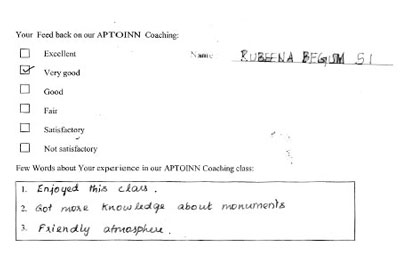 Your Feed back on our APTOINN Coaching:
Excellent
Name RUBEENA BEGUM S I
Very good
Good
Fair
Satisfactory
Not satisfactory
Few Words about Your experience in our APTOINN Coaching class:
1. Enjoyed this class.
2. Got more knowledge about monuments
3. Friendly atmosphere.